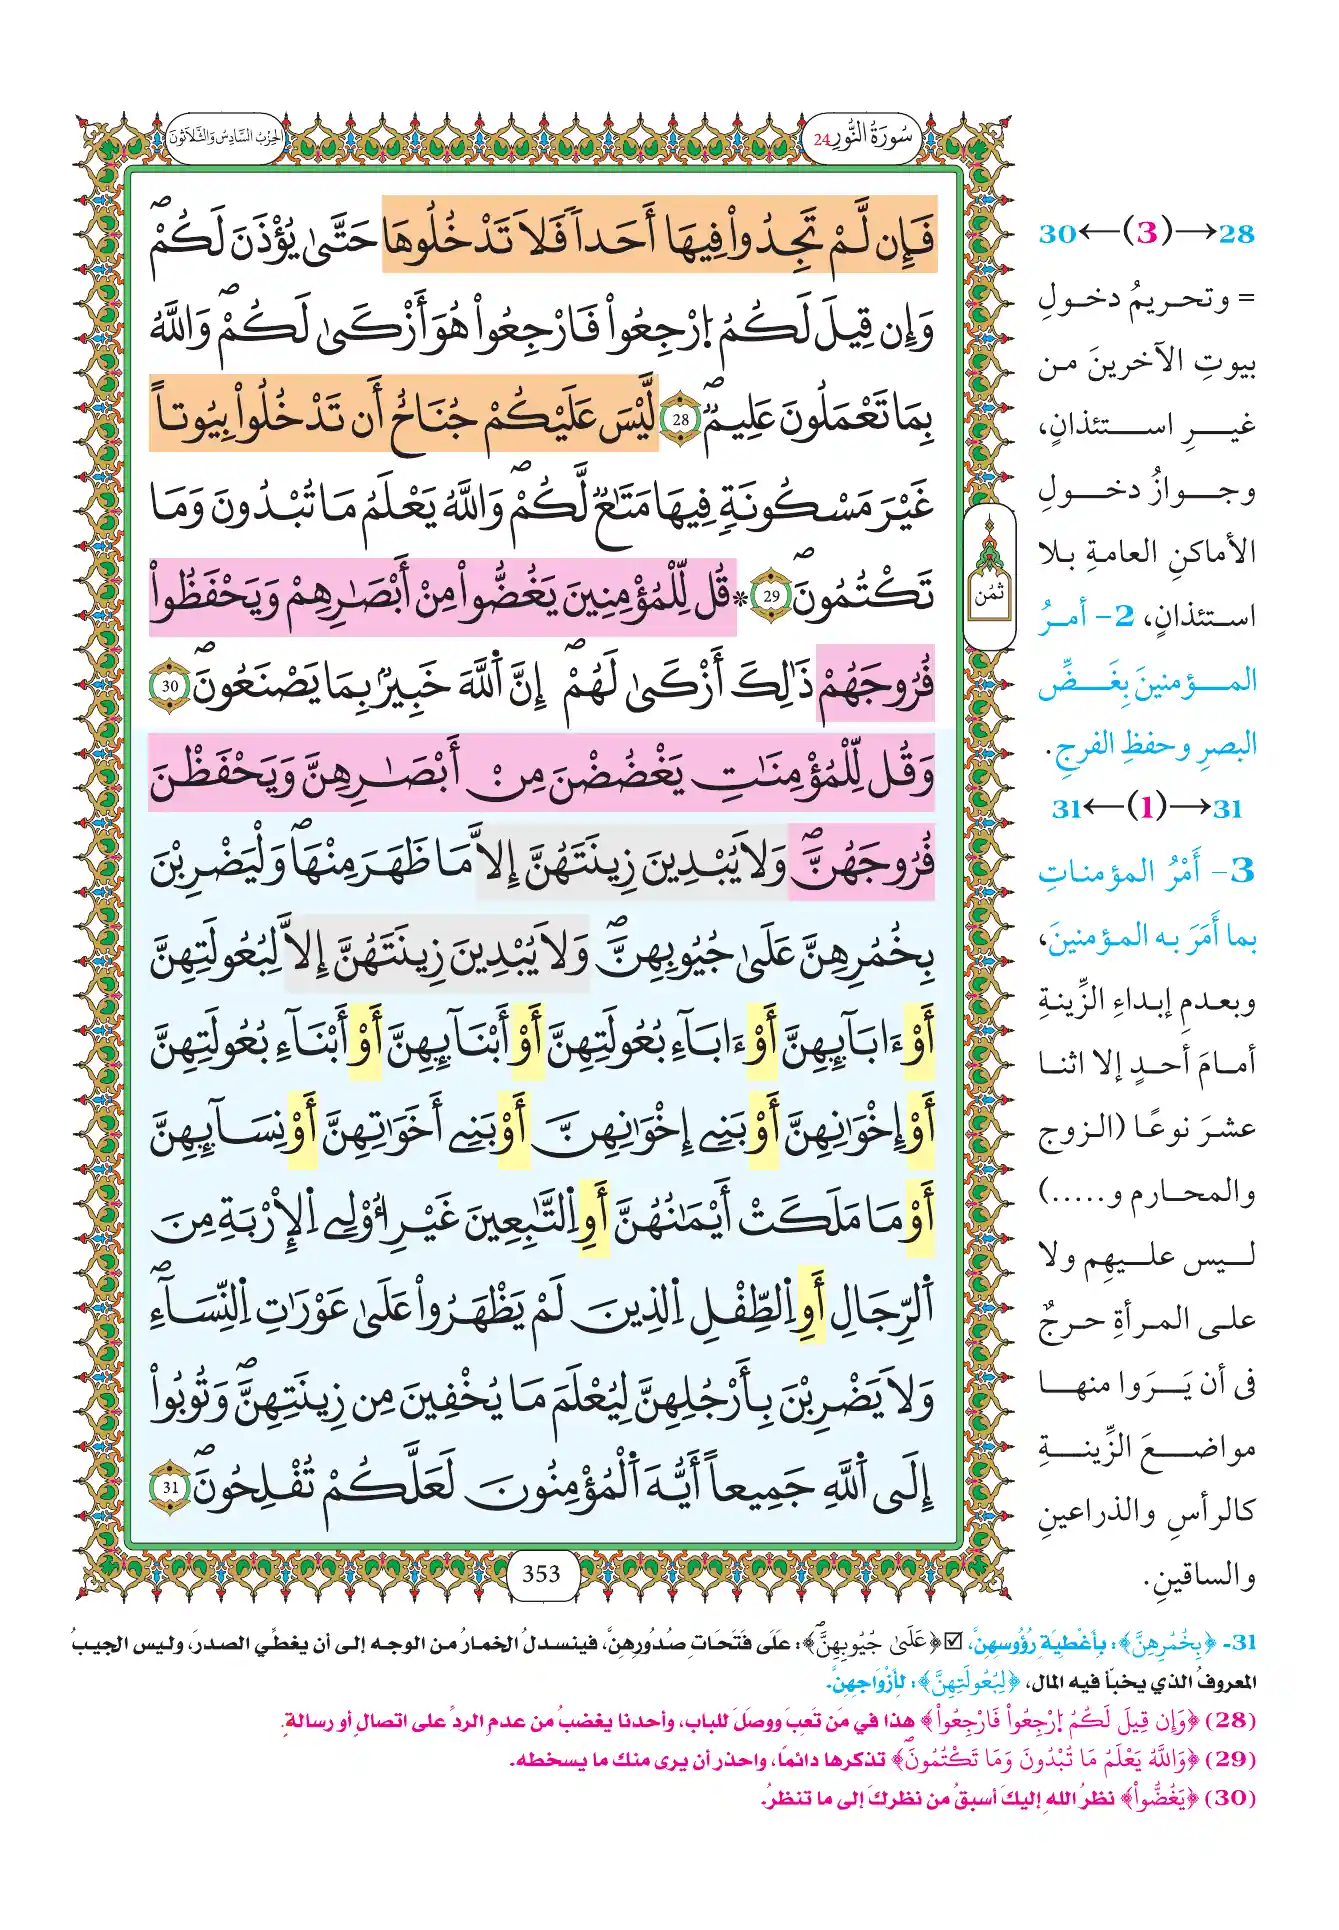 سُورَةُ النُّورِ 24
الحِزْبُ السَّادِسُ وَالثَّلَاثُونَ
فَإِن لَّمْ تَجِدُواْ فِيهَا أَحَداً فَلَا تَدْخُلُوهَا حَتَّىٰ يُؤْذَنَ لَكُمْۖ
وَإِن قِيلَ لَكُمُ اُ۪رْجِعُواْ فَارْجِعُواْ هُوَ أَزْكَىٰ لَكُمْۖ وَاللَّهُ
بِمَا تَعْمَلُونَ عَلِيمٌۖ 28 لَّيْسَ عَلَيْكُمْ جُنَاحٌ أَن تَدْخُلُواْ بِيُوتاً
غَيْرَ مَسْكُونَةٍ فِيهَا مَتَاعٌ لَّكُمْۖ وَاللَّهُ يَعْلَمُ مَا تُبْدُونَ وَمَا
تَكْتُمُونَۖ 29 * قُل لِّلْمُؤْمِنِينَ يَغُضُّواْ مِنْ أَبْصَٰرِهِمْ وَيَحْفَظُواْ
فُرُوجَهُمْ ذَٰلِكَ أَزْكَىٰ لَهُمْۖ إِنَّ اَ۬للَّهَ خَبِيرٌ بِمَا يَصْنَعُونَۖ 30
وَقُل لِّلْمُؤْمِنَٰتِ يَغْضُضْنَ مِنْ أَبْصَٰرِهِنَّ وَيَحْفَظْنَ
فُرُوجَهُنَّۖ وَلَا يُبْدِينَ زِينَتَهُنَّ إِلَّا مَا ظَهَرَ مِنْهَاۖ وَلْيَضْرِبْنَ
بِخُمُرِهِنَّ عَلَىٰ جُيُوبِهِنَّۖ وَلَا يُبْدِينَ زِينَتَهُنَّ إِلَّا لِبُعُولَتِهِنَّ
أَوْ ءَابَآئِهِنَّ أَوْ ءَابَآءِ بُعُولَتِهِنَّ أَوْ أَبْنَآئِهِنَّ أَوْ أَبْنَآءِ بُعُولَتِهِنَّ
أَوْ إِخْوَٰنِهِنَّ أَوْ بَنِے إِخْوَٰنِهِنَّ أَوْ بَنِے أَخَوَٰتِهِنَّ أَوْ نِسَآئِهِنَّ
أَوْ مَا مَلَكَتْ أَيْمَٰنُهُنَّ أَوِ اِ۬لتَّٰبِعِينَ غَيْرِ أُوْلِے اِ۬لْإِرْبَةِ مِنَ
اَ۬لرِّجَالِ أَوِ اِ۬لطِّفْلِ اِ۬لذِينَ لَمْ يَظْهَرُواْ عَلَىٰ عَوْرَٰتِ اِ۬لنِّسَآءِۖ
وَلَا يَضْرِبْنَ بِأَرْجُلِهِنَّ لِيُعْلَمَ مَا يُخْفِينَ مِن زِينَتِهِنَّۖ وَتُوبُواْ
إِلَى اَ۬للَّهِ جَمِيعاً أَيُّهَ اَ۬لْمُؤْمِنُونَ لَعَلَّكُمْ تُفْلِحُونَۖ 31
ثُمُن
353
28→(3)←30
= وتحريمُ دخولِ
بيوتِ الآخرينَ من
غيرِ استئذانٍ،
وجوازُ دخولِ
الأماكنِ العامةِ بلا
استئذانٍ، 2- أمرُ
المؤمنينَ بِغَضِّ
البصرِ وحفظِ الفرجِ.
31→(1)←31
3- أَمْرُ المؤمناتِ
بما أَمَرَ به المؤمنينَ،
وبعدمِ إبداءِ الزِّينةِ
أمامَ أحدٍ إلا اثنا
عشرَ نوعًا (الزوج
والمحارم و.....)
ليس عليهِم ولا
على المرأةِ حرجٌ
فى أن يَرَوا منها
مواضعَ الزِّينةِ
كالرأسِ والذراعينِ
والساقينِ.
31- ﴿بِخُمُرِهِنَّ﴾: بأغْطِيَةِ رُؤُوسِهِنَّ، ☑ ﴿عَلَىٰ جُيُوبِهِنَّۖ﴾: عَلَى فَتَحَاتِ صُدُورِهِنَّ، فينسدلُ الخمارُ من الوجه إلى أن يغطِّي الصدرَ، وليس الجيبُ
المعروفُ الذي يخبأ فيه المال، ﴿لِبُعُولَتِهِنَّ﴾: لأزْوَاجِهِنَّ.
(28) ﴿وَإِن قِيلَ لَكُمُ اُ۪رْجِعُواْ فَارْجِعُواْ﴾ هذا في مَن تَعِبَ ووصَلَ للباب، وأحدنا يغضبُ من عدمِ الردِّ على اتصالٍ أو رسالةٍ.
(29) ﴿وَاللَّهُ يَعْلَمُ مَا تُبْدُونَ وَمَا تَكْتُمُونَۖ﴾ تذكرها دائمًا، واحذر أن يرى منك ما يسخطه.
(30) ﴿يَغُضُّواْ﴾ نظرُ اللهِ إليكَ أسبقُ من نظرِكَ إلى ما تنظرُ.